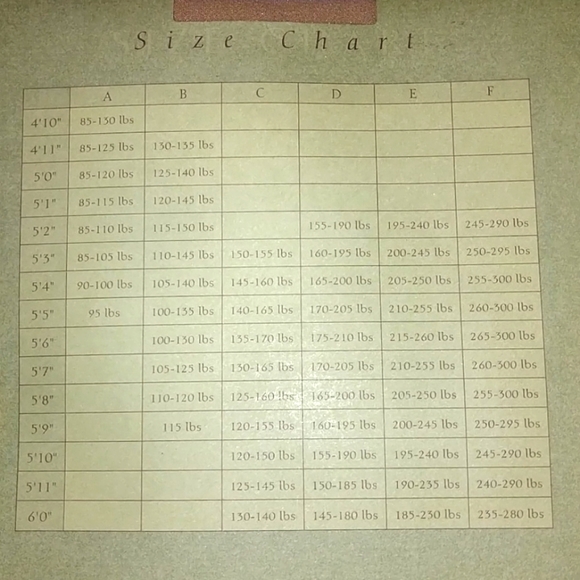 Size Chart
A B C D E F
4'10" 85-130 lbs
4'11" 85-125 lbs 130-135 lbs
5'0" 85-120 lbs 125-140 lbs
5'1" 85-115 lbs 120-145 lbs
5'2" 85-110 lbs 115-150 lbs 155-190 lbs 195-240 lbs 245-290 lbs
5'3" 85-105 lbs 110-145 lbs 150-155 lbs 160-195 lbs 200-245 lbs 250-295 lbs
5'4" 90-100 lbs 105-140 lbs 145-160 lbs 165-200 lbs 205-250 lbs 255-300 lbs
5'5" 95 lbs 100-135 lbs 140-165 lbs 170-205 lbs 210-255 lbs 260-300 lbs
5'6" 100-130 lbs 135-170 lbs 175-210 lbs 215-260 lbs 265-300 lbs
5'7" 105-125 lbs 130-165 lbs 170-205 lbs 210-255 lbs 260-300 lbs
5'8" 110-120 lbs 125-160 lbs 165-200 lbs 205-250 lbs 255-300 lbs
5'9" 115 lbs 120-155 lbs 160-195 lbs 200-245 lbs 250-295 lbs
5'10" 120-150 lbs 155-190 lbs 195-240 lbs 245-290 lbs
5'11" 125-145 lbs 150-185 lbs 190-235 lbs 240-290 lbs
6'0" 130-140 lbs 145-180 lbs 185-230 lbs 235-280 lbs